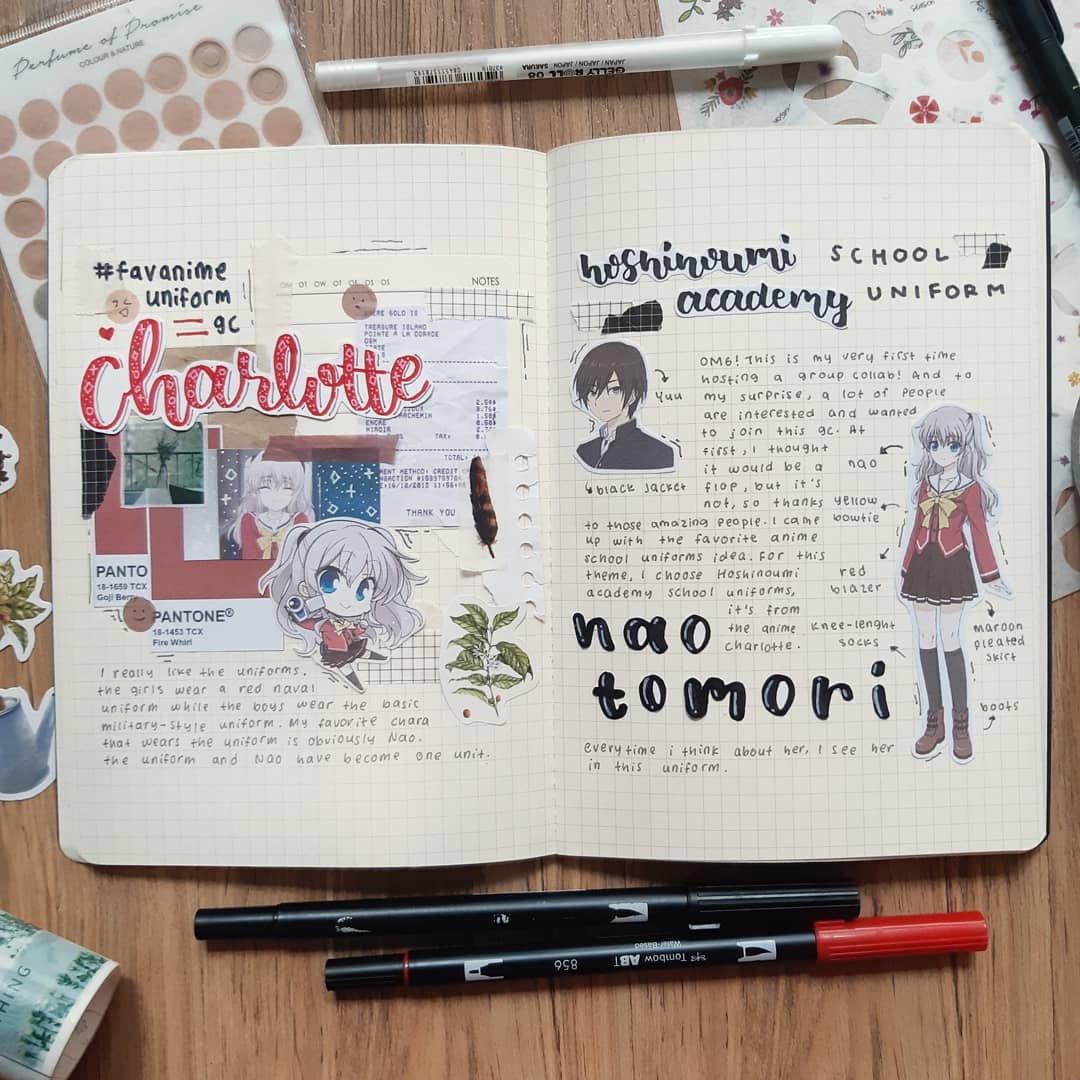 Perfume of Promise
COLOUR & NATURE
JAPAN / JAPON / JAPÓN SAKURA
GELLY ROLL 08
#favanime
uniform
gc
charlotte
NOTES
TREASURE ISLAND
POINTE A LA CORADE
TAX:
TOTAL:
THANK YOU
PANTO
18-1659 TCX
Goji Berry
PANTONE®
18-1453 TCX
Fire Whirl
I really like the uniforms.
the girls wear a red naval
uniform while the boys wear the basic
military-style uniform. My favorite chara
that wears the uniform is obviously Nao.
the uniform and Nao have become one unit.
hoshinoumi
academy
SCHOOL
UNIFORM
Yuu
black jacket
OMG! This is my very first time
hosting a group collab! And to
my surprise, a lot of people
are interested and wanted
to join this gc. At
first, I thought
it would be a
flop, but it's
not, so thanks
to those amazing people. I came
up with the favorite anime
school uniforms idea. For this
theme, I choose Hoshinoumi
academy school uniforms,
it's from
the anime
charlotte.
nao
yellow
bowtie
red
blazer
knee-lenght
socks
maroon
pleated
skirt
boots
nao
tomori
everytime i think about her, I see her
in this uniform.
Tombow ABT
Water-Based
856
HING